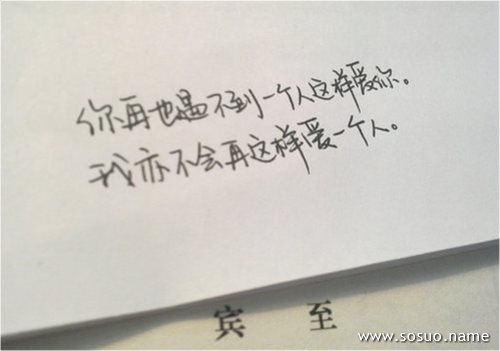 你再也遇不到一个人这样爱你。
我亦不会再这样爱一个人。
宾 至
www.sosuo.name